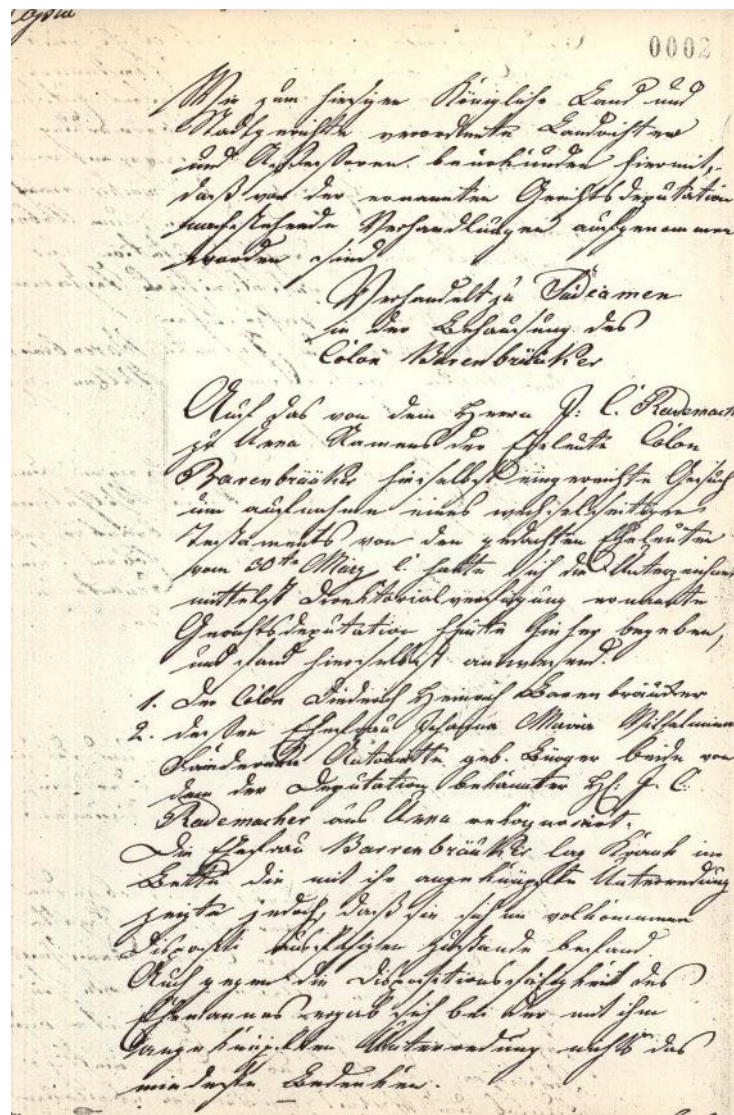 Copia
0002
Wir zum hiesigen Königlichen Land und
Stadtgerichte verordnete Landrichter
und Assessoren beurkunden hiermit,
daß von der ernannten Gerichtsdeputation
nachstehende Verhandlungen aufgenommen
worden sind
Verhandelt zu
in der Behausung des
Colon Barenbräuker
Auf das von dem Herrn J. C. Rademach
zu Unna Namens der Eheleute Colon
Barenbräuker hierselbst eingereichte Gesuch
um aufnahme eines wechselseitigen
Testaments von den gedachten Eheleuten
vom 30ten März c. hatte sich die Unterzeichnete
mittelst Direktorialverfügung ernannte
Gerichtsdeputation heute hieher begeben,
und fand hierselbst anwesend:
1. Den Colon Diedrich Heinrich Barenbräuker
2. dessen Ehefrau Johanna Maria Wilhelmina
geb. Bürger beide von
dem der Deputation bekannter H. J. C.
Rademacher aus Unna rekognoscirt.
Die Ehefrau Barrenbräuker lag Krank im
Bette die mit ihr angeknüpfte Unterredung
zeigte jedoch, daß sie sich im volkommen
Zustande befand.
Auch gegen die Dispositionsfähigkeit des
Ehemannes ergab sich bei der mit ihm
angeknüpften Unterredung nichts das
mindeste Bedenken.